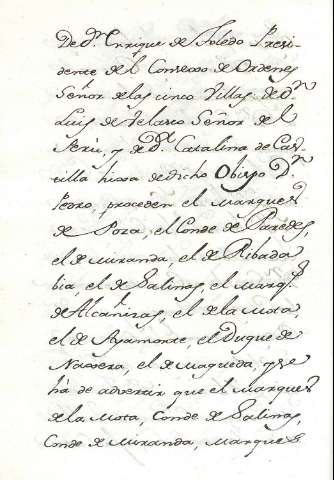 De Dn. Enrique de Toledo Presi-
dente del Consexo de Ordenes
Señor de las cinco Villas: de Dn.
Luis de Velasco Señor de el
Seru, y de Da. Catalina de Cas-
tilla hixa de dicho Obispo Dn.
Pedro, proceden el Marques
de Poza, el Conde de Paredes,
el de Miranda, el de Ribada
bia, el de Salinas, el Marqs.
de Alcañizas, el de la Mota,
el de Ayamonte, el Duque de
Naxera, el de Maqueda, y se
há de advertir que el Marques
de la Mota, Conde de Salinas,
Conde de Miranda, Marques